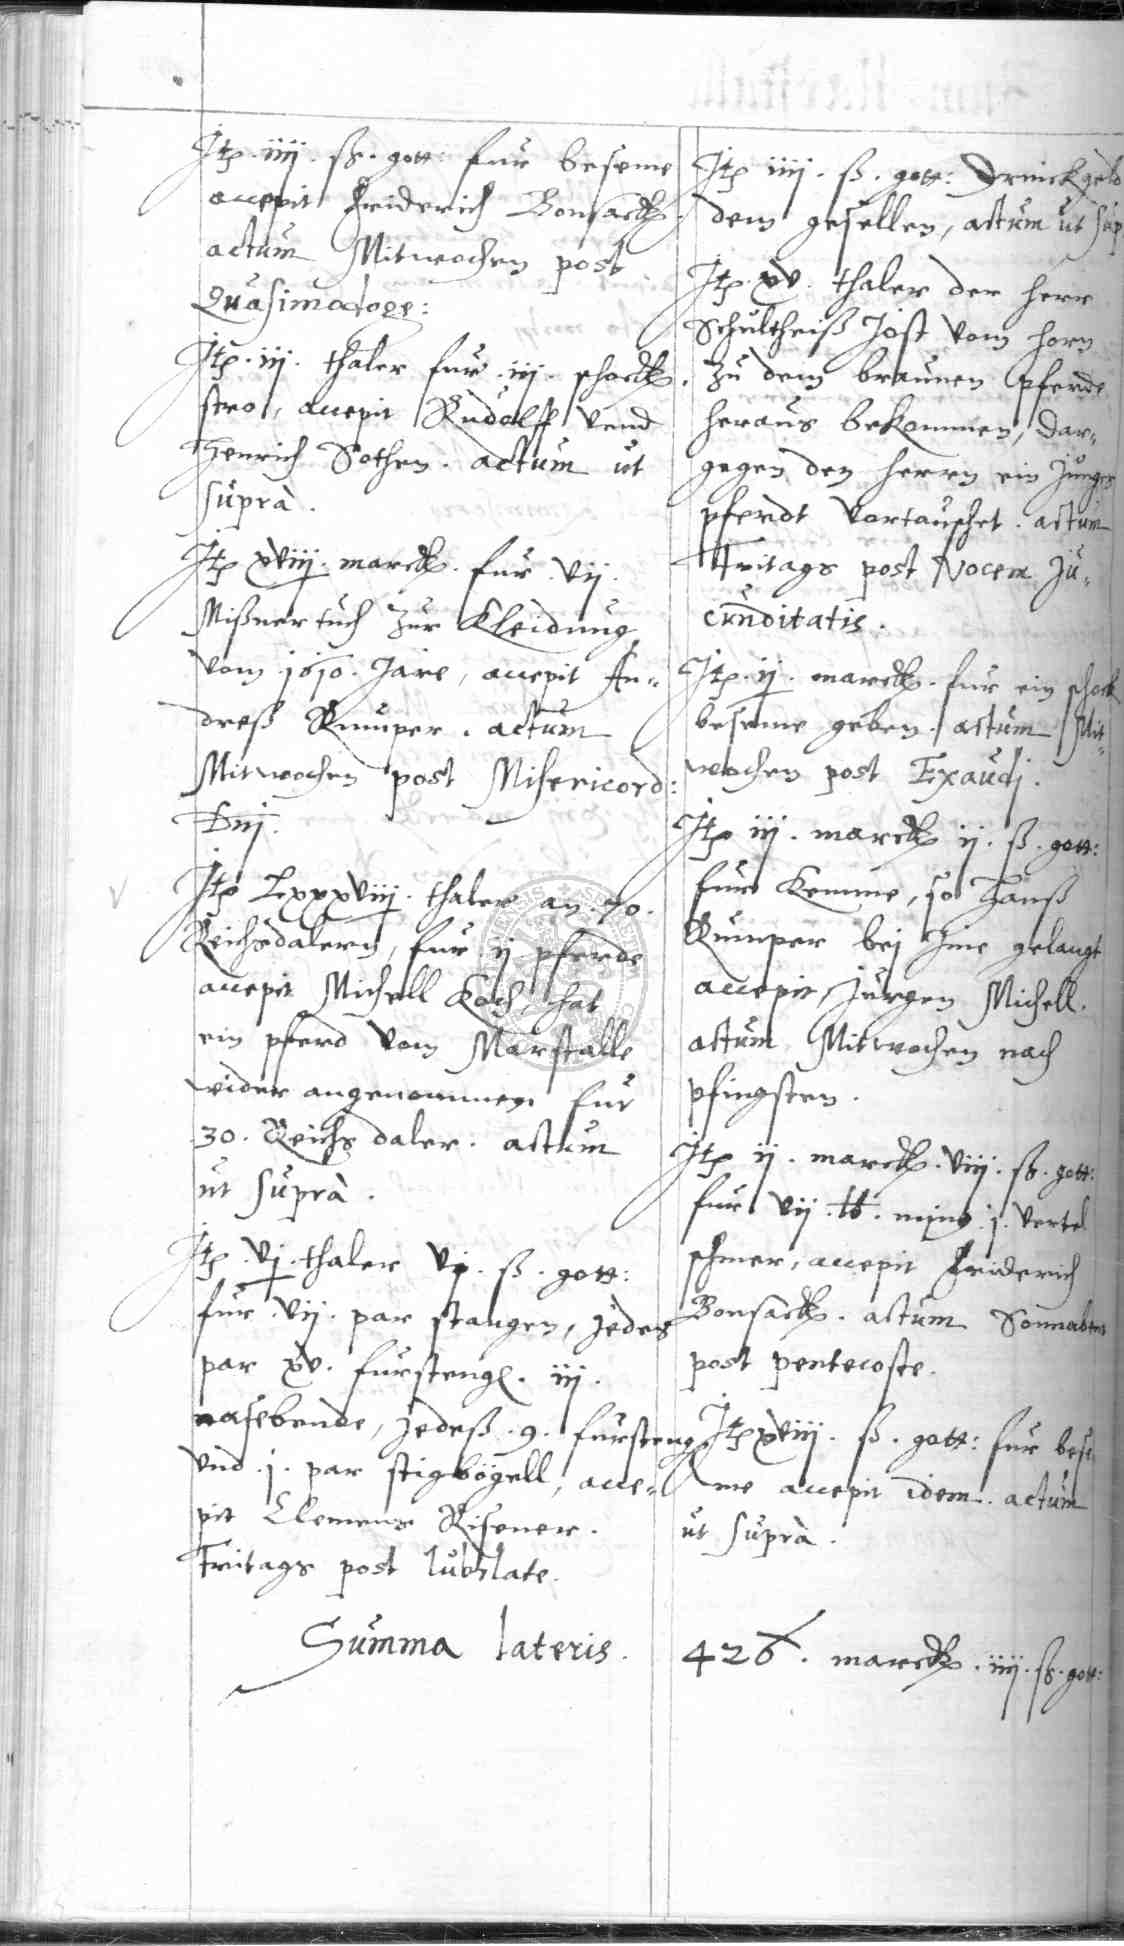 Itp. iiij. ß. gott: fur beseme
accepit Friderich Bonsack.
actum Mitwochen post
Quasimodoge:
Itp. iij. thaler fur. iij. schock.
stro, accepit Rudolff vnd
Henrich Sothen. actum ut
suprà.
Itp xviij. marck. fur. vij.
Mißner tuch zur Kleidung
vom 1610. Jare, accepit An-
dreß Kumper. actum
Mitwochen post Misericord:
Dnj.
Itp Lxxxviij. thaler an 70.
Reichsdalern, fur ij pferde
accepit Michell Koch, hat
ein pferd vom Marstalle
wider angenommen fur
30. Reichs daler. actum
ut suprà.
Itp. vj. thaler vj. ß. gott:
fur. vij. par stangen, jedes
par xv. furstengl. iij.
nasebende, jedeß. 9. fursteng
vnd. j. par stigbögell, acce-
pit Clemens Risener.
Fritags post Iubilate.
Itp iiij. ß. gott: Drinckgeld
dem gesellen, actum ut sup
Itp. xv. thaler der herr
Schultheiß Jost vom horn
zu dem braunen pferde
heraus bekommen, dar-
gegen den herrn ein junges
pferdt vortauschet. actum
Fritags post Vocem Ju-
cunditatis.
Itp. ij. marck. fur ein schock
beseme geben. actum Mit-
wochen post Exaudj.
Itp iij. marck ij. ß. gott:
fur Kemme, so Hanß
Kumper bej Ime gelangt
accepit, Jurgen Michell.
actum Mitwochen nach
pfingsten.
Itp ij. marck. viij. ß. gott:
fur vij. lb. ming. j. vertel
schmer, accepit Friderich
Bonsack. actum Sonnabent
post pentecoste.
Itp xviij. ß. gott: fur bese-
me accepit idem. actum
ut suprà.
Summa lateris. 426. marck. iiij. ß. gott: